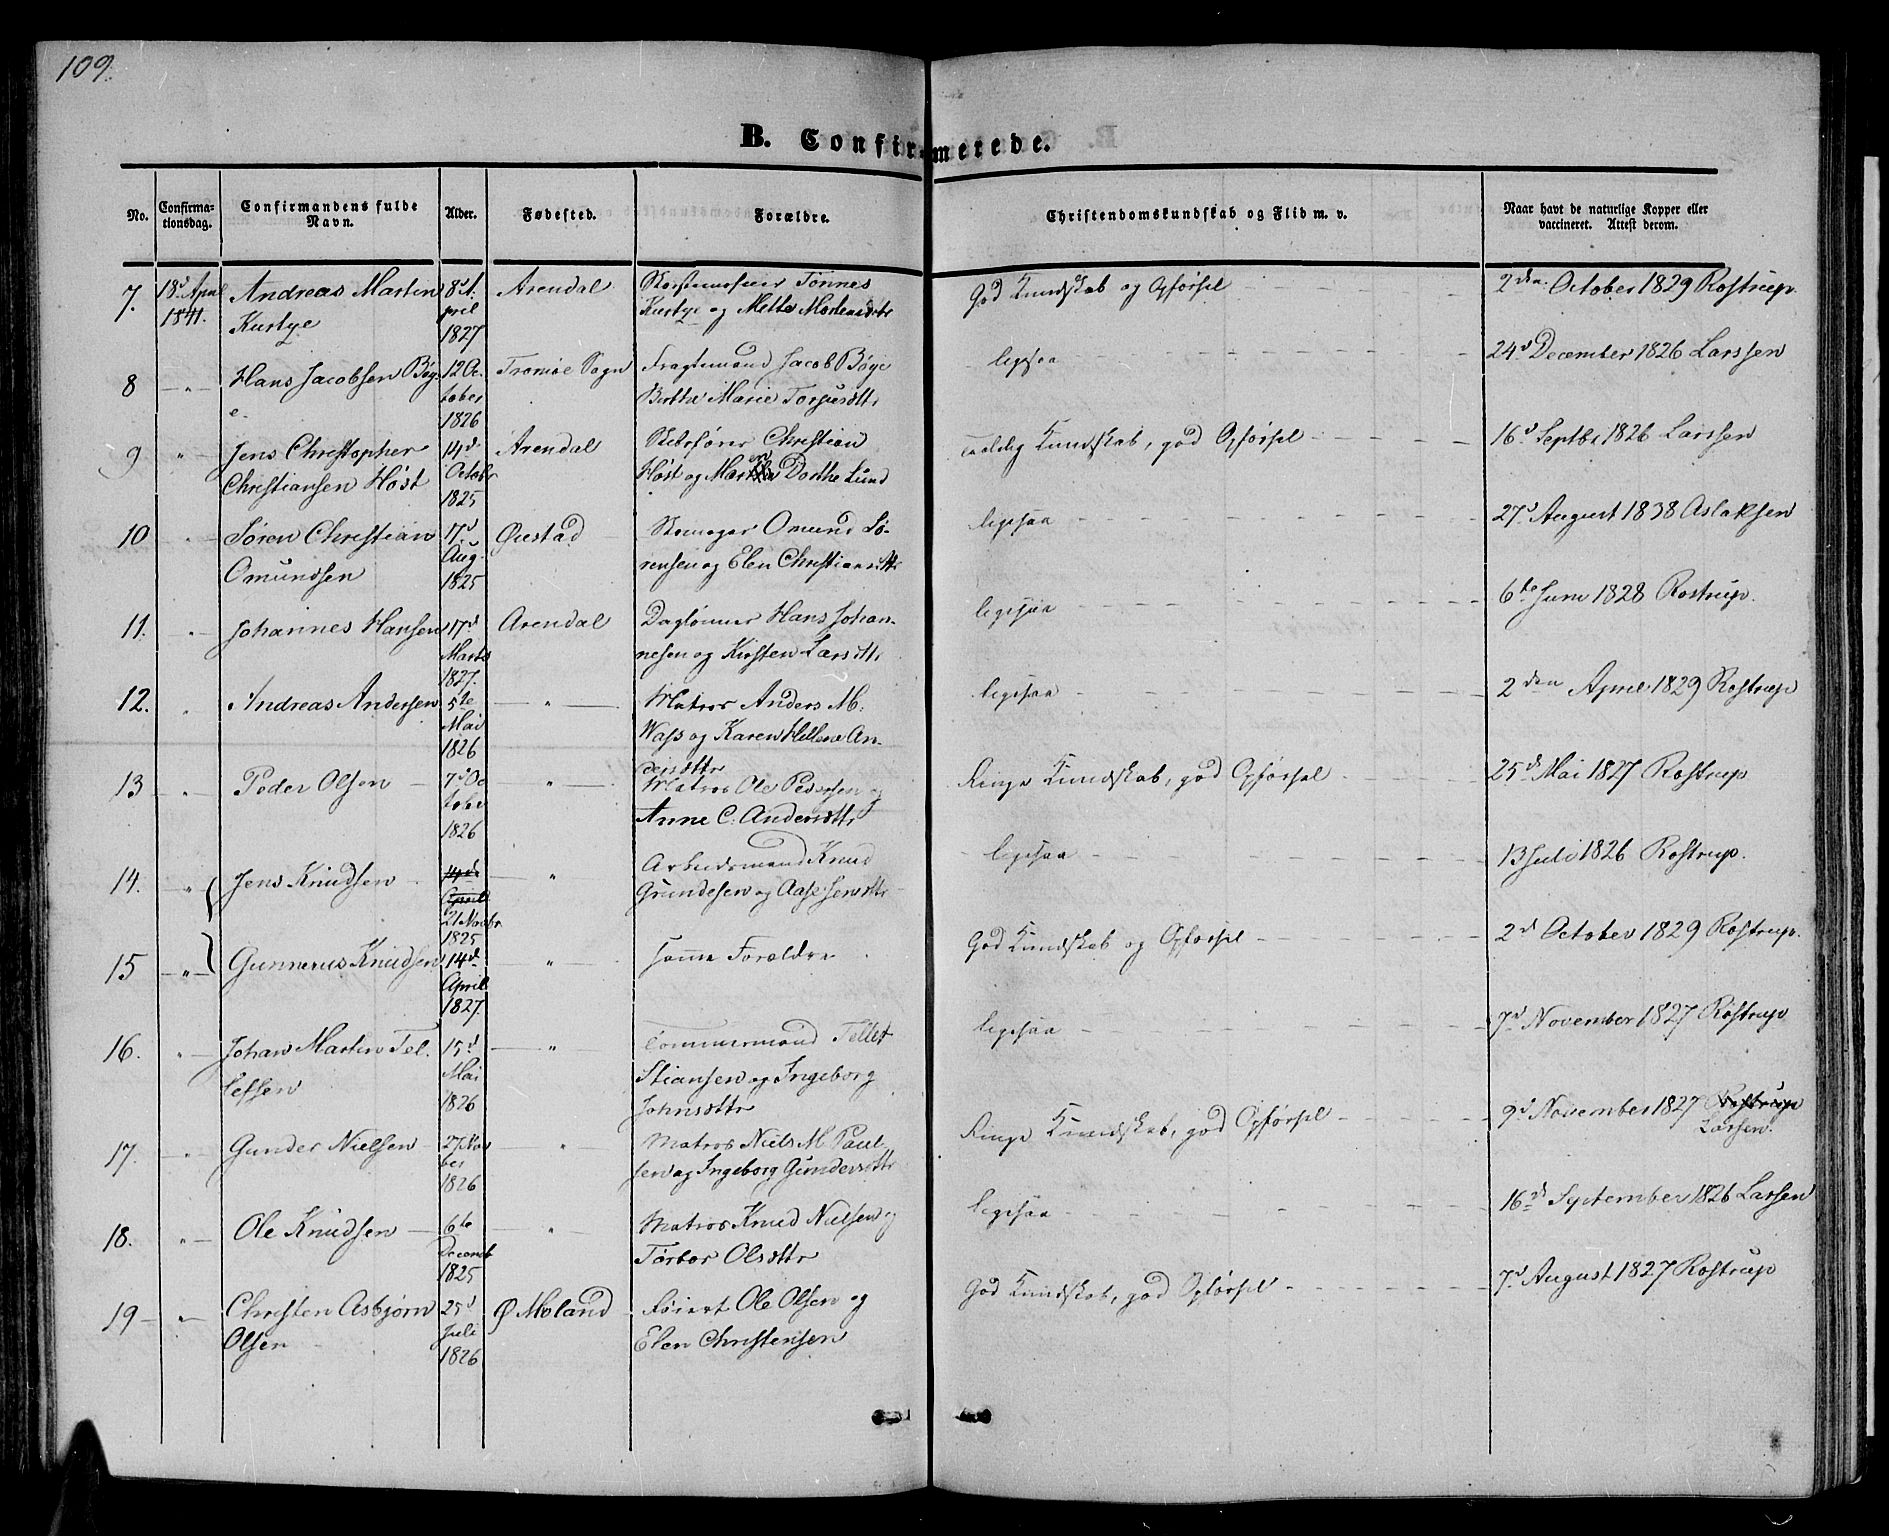 109.
B. Confirmerede.
No.
Confirma-
tionsdag.
Confirmandens fulde
Navn.
Alder.
Fødested.
Forældre.
Christendomskundskab og Flid m. v.
Naar havt de naturlige Kopper eller
vaccineret. Attest derom.
7. 18d April 1841. Andreas Martin Kurtye 8d April 1827 Arendal Tønnes Kurtye og Mette Mortensdttr God Kundskab og Opførsel 2den October 1829 Rostrup.
8 " Hans Jacobsen Bøye. 12 October 1826 Tromøe Sogn Fragtemand Jacob Bøye Berthe Marie Torjusdttr ligesaa 24d December 1826 Larssen
9 " Jens Christopher Christiansen Høst 14d Octobr 1825 Arendal Christian Høst og Maren Dorthe Lund Kundskab, god Opførsel 16d Septbr 1826 Larssen
10 " Søren Christian Omundsen 17d Aug. 1825 Øiestad Omund Sørensen og Elen Christiansdttr ligesaa 27d August 1838 Aslaksen
11. " Johannes Hansen 17d Marts 1827. Arendal Daglønner Hans Johannesen og Kirsten Larsdttr ligesaa 6te Juni 1828 Rostrup.
12. " Andreas Andersen 5te Mai 1826 " Matros Anders M. Wass og Karen Hellene Andersdttr ligesaa 2den April 1829 Rostrup
13 " Peder Olsen 7d October 1826 " Matros Ole Pedersen og Anne C. Andersdttr Ringe Kundskab, god Opførsel 25d Mai 1827 Rostrup
14. " Jens Knudsen 14de April 21 Novbr 1825 " Arbeidsmand Knud Grundesen og Aase Jensdttr ligesaa 13 Juli 1826 Rostrup.
15 " Gunnerus Knudsen 14d April 1827. " samme Forældre God Kundskab og Opførsel 2d October 1829 Rostrup.
16. " Johan Martin Tellefsen 15d Mai 1826 " Tømmermand Tellef Stiansen og Ingeborg Johnsdttr ligesaa 7d November 1827 Rostrup
17. " Gunder Nielsen 27 Novber 1826 " Matros Niels M. Paulsen og Ingeborg Gundersdttr Ringe Kundskab, god Opførsel 9d November 1827 Rostrup Larsen.
18. " Ole Knudsen 6te Decemb 1825 " Matros Knud Nielsen og Torbor Olsdttr ligesaa 16d September 1826 Larsen
19 " Christen Asbjørn Olsen 25d Juli 1826 Ø Moland Ole Olsen og Elen Christensen God Kundskab, god Opførsel 7d August 1827 Rostrup